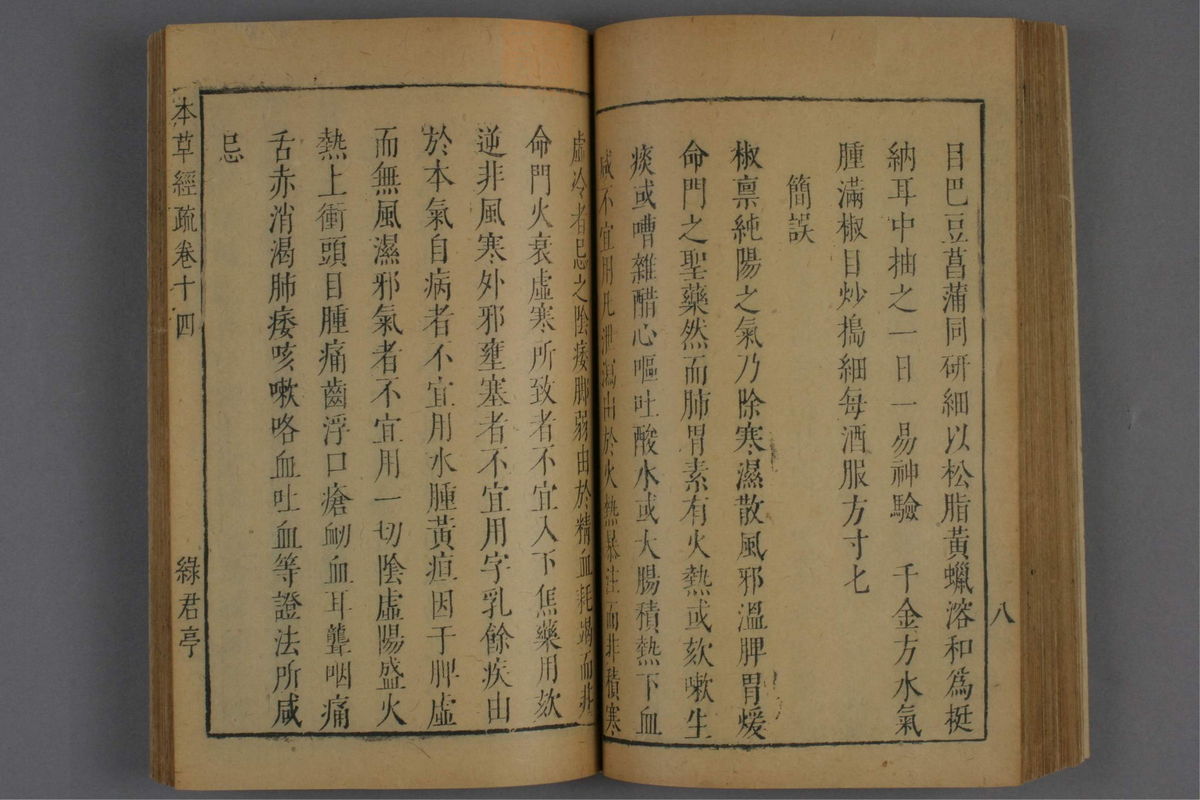 八
目巴豆菖蒲同研細以松脂黃蠟溶和為挺
納耳中抽之一日一易神驗　千金方水氣
腫滿椒目炒搗細每酒服方寸匕
簡誤
椒禀純陽之氣乃除寒濕散風邪溫脾胃煖
命門之聖藥然而肺胃素有火熱或欬嗽生
痰或嘈雜醋心嘔吐酸水或大腸積熱下血
咸不宜用凡泄瀉由於火熱暴注而非積寒
虛冷者忌之陰痿脚弱由於精血耗竭而非
命門火衰虛寒所致者不宜入下焦藥用欬
逆非風寒外邪壅塞者不宜用字乳餘疾由
於本氣自病者不宜用水腫黃疸因于脾虛
而無風濕邪氣者不宜用一切陰虛陽盛火
熱上衝頭目腫痛齒浮口瘡衂血耳聾咽痛
舌赤消渴肺痿咳嗽咯血吐血等證法所咸
忌
本草經疏卷十四
綠君亭